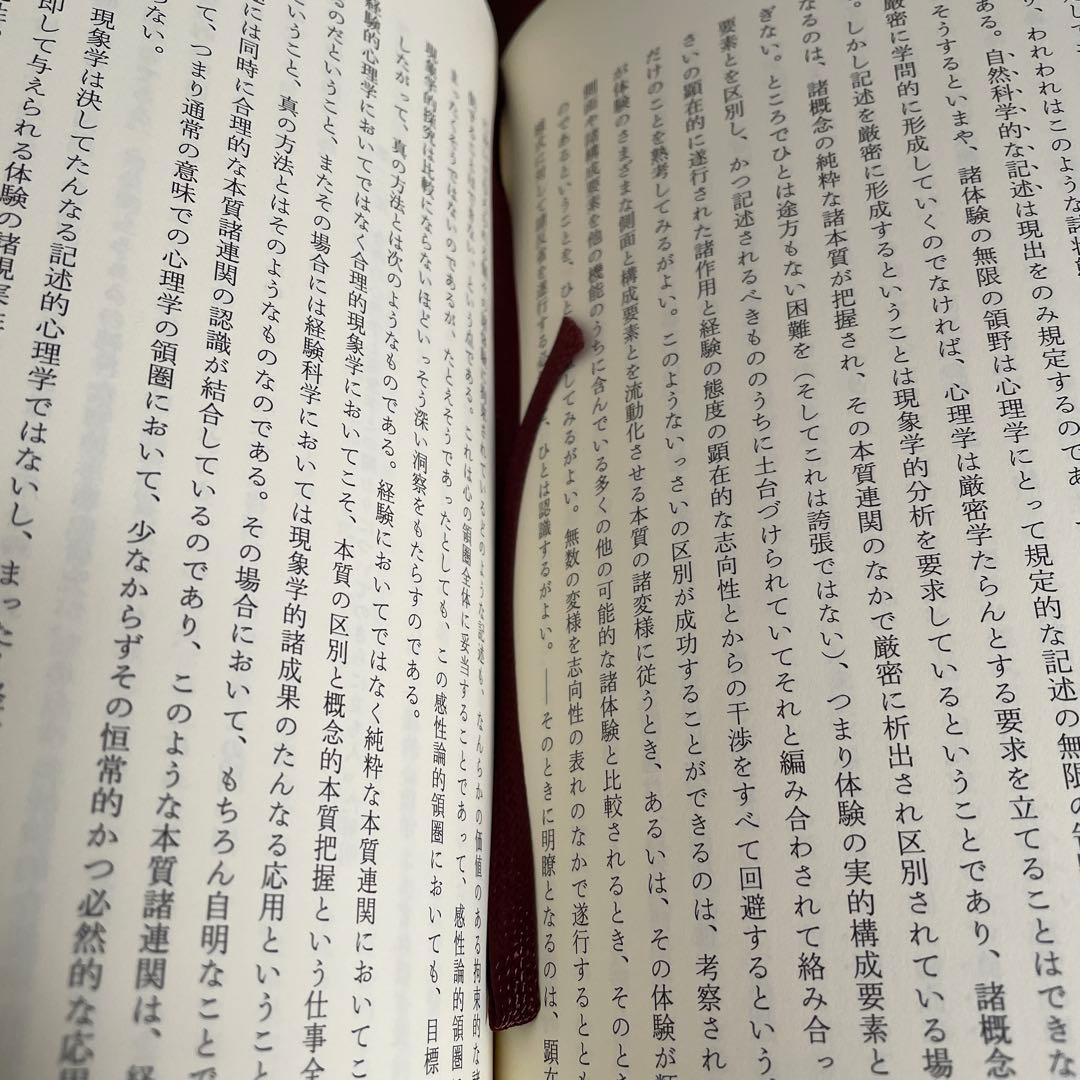 して、われわれはこのような諸状
ある。自然科学的な記述は現出をのみ規定するのであ
そうするといまや、諸体験の無限の領野は心理学にとって規定的な記述の無限の領
厳密に学問的に形成していくのでなければ、心理学は厳密学たらんとする要求を立てることはできな
。しかし記述を厳密に形成するということは現象学的分析を要求しているということであり、諸概念
なるのは、諸概念の純粋な諸本質が把握され、その本質連関のなかで厳密に析出され区別されている場
ぎない。ところでひとは途方もない困難を（そしてこれは誇張ではない）、つまり体験の実的構成要素と
要素とを区別し、かつ記述されるべきもののうちに土台づけられていてそれと編み合わされて絡み合っ
さいの顕在的に遂行された諸作用と経験の態度の顕在的な志向性とからの干渉をすべて回避するという
だけのことを熟考してみるがよい。このようないっさいの区別が成功することができるのは、考察され
が体験のさまざまな側面と構成要素とを流動化させる本質の諸変様に従うとき、あるいは、その体験が
側面や諸構成要素を他の機能のうちに含んでいる多くの他の可能的な諸体験と比較されるとき、そのと
のであるということを、ひと してみるがよい。無数の変様を志向性の表れのなかで遂行するとと
、ひとは認識するがよい。――そのときに明瞭となるのは、顕在
されているどのような記述も、なんらかの価値のある拘束的な
という点である。これは心の領圏全体に妥当することであって、感性論的領圏に
まったくそうではないのであるが、たとえそうであったとしても、この感性論的領圏においても、目標
現象学的探究は比較にならないほどいっそう深い洞察をもたらすのである。
したがって、真の方法とは次のようなものである。経験においてではなく純粋な本質連関においてこ
経験的心理学においてではなく合理的現象学においてこそ、本質の区別と概念的本質把握という仕事全
るのだということ、またその場合には経験科学においては現象学的諸成果のたんなる応用ということ
いうこと、真の方法とはそのようなものなのである。その場合において、もちろん自明なことで
には同時に合理的な本質諸連関の認識が結合しているのであり、このような本質諸連関は、経
て、つまり通常の意味での心理学の領圏において、少なからずその恒常的かつ必然的な応用
らない。
現象学は決してたんなる記述的心理学ではないし、まった
即して与えられる体験の諸現実在